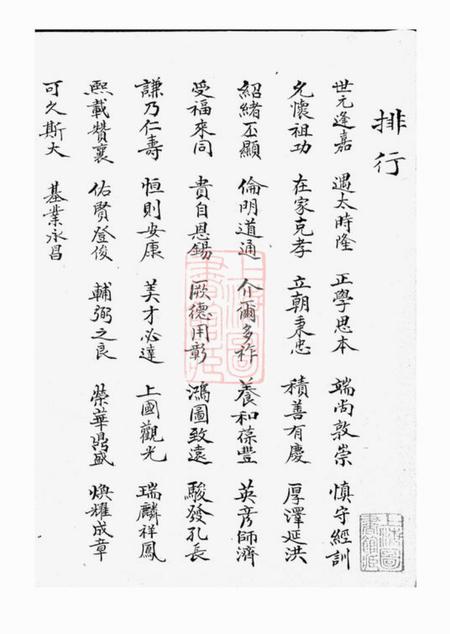 排行
世元逢嘉 遇太時隆 正學思本 端尚敦崇 慎守經訓
允懷祖功 在家克孝 立朝秉忠 積善有慶 厚澤延洪
紹緒丕顯 倫明道通 介爾多祚 養和葆豐 英彥師濟
受福來同 貴自恩錫 厥德用彰 鴻圖致遠 駿發孔長
謙乃仁壽 恒則安康 美才必達 上國觀光 瑞麟祥鳳
熙載贊襄 佑賢登俊 輔弼之良 榮華鼎盛 煥耀成章
可久斯大 基業永昌
上海圖書館藏